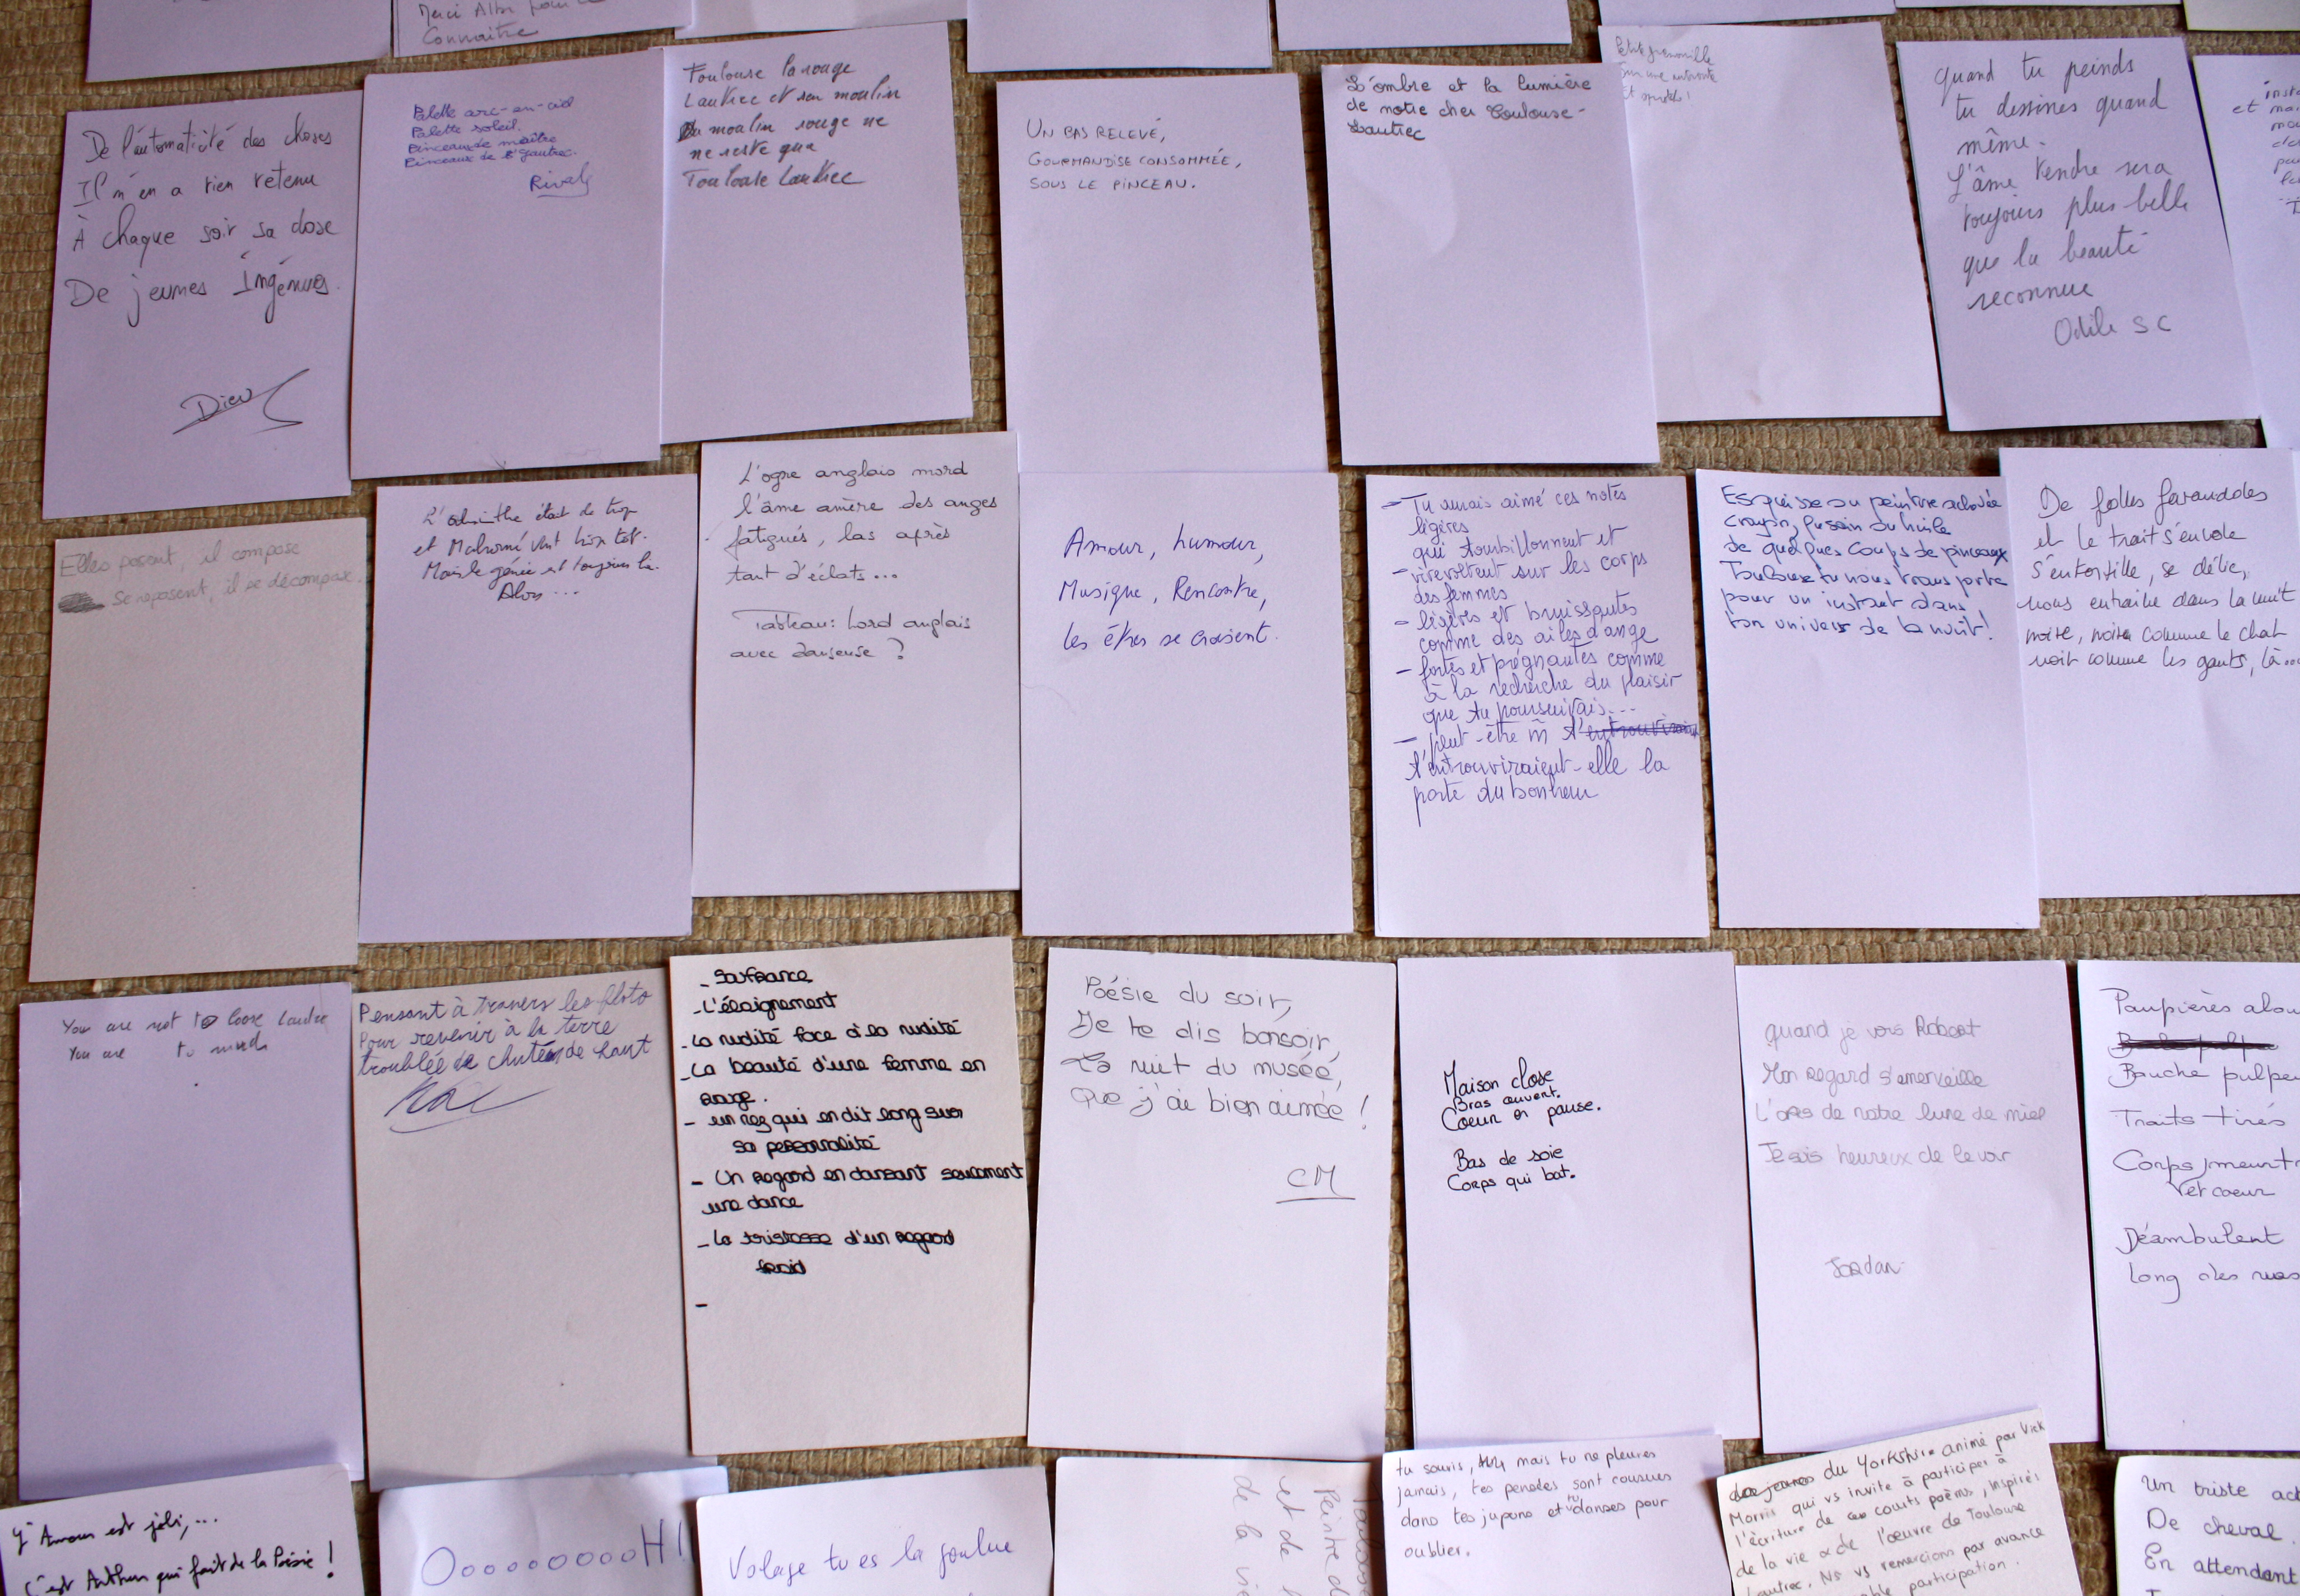 Merci Alba pour
Connaitre
De l'automaticité des choses
Il n'en a rien retenu
À chaque soir sa dose
De jeunes Ingénues.
Dieu
Palette arc-en-ciel
Palette soleil.
Pinceaux de maître
Pinceaux de Lautrec.
Toulouse la rouge
Lautrec et son moulin
Du moulin rouge ne
ne reste que
Toulouse Lautrec
UN BAS RELEVÉ,
GOURMANDISE CONSOMMÉE,
SOUS LE PINCEAU.
L'ombre et la lumière
de notre cher Toulouse-
Lautrec
Petite grenouille
Sur une
Et
quand tu peinds
tu dessines quand
même.
L'âme tendre sera
toujours plus belle
que la beauté
reconnue
Odile SC
et
Elles posent, il compose
se reposent, il se décompose.
L'absinthe était de trop
et Malromé vint trop tôt.
Mais le génie est toujours là.
Alors ...
L'ogre anglais mord
l'âme amère des anges
fatigués, las après
tant d'éclats...
Tableau: Lord anglais
avec danseuse ?
Amour, humour,
Musique, Rencontre,
les êtres se croisent.
- Tu aurais aimé ces notes
légères
qui tourbillonnent et
- virevoltent sur les corps
des femmes
- légères et bruissantes
comme des ailes d'ange
- fortes et prégnantes comme
à la recherche du plaisir
que tu poursuivais...
- peut-être m̂ t'entrouvrirai
t'entrouviraient-elle la
porte du bonheur
Esquisse ou peinture achevée
crayon, fusain ou huile
de quelques coups de pinceaux
Toulouse tu nous transporte
pour un instant dans
ton univers de la nuit!
De folles farandoles
et le trait s'envole
S'entortille, se délie,
nous entraîne dans la nuit
noire, noire comme le chat
noir comme les gants, là...
You are not to loose Lautrec
You are to
Pensant à travers les flots
Pour revenir à la terre
troublée de chutes de haut
- Souffrance
- L'éloignement
- La nudité face à la nudité
- La beauté d'une femme en
rouge.
- un nez qui en dit long sur
sa personnalité
- Un regard en dansant seulement
une dance
- La tristesse d'un regard
froid
-
Poésie du soir,
Je te dis bonsoir,
La nuit du musée,
Que j'ai bien aimée !
CM
Maison close
Bras ouvert.
Coeur en pause.
Bas de soie
Corps qui bat.
quand je vois Robert
Mon regard s'emerveille
L'ors de notre lune de miel
Je suis heureux de le voir
Jordan
Paupières alou
Bouche pulpe
Traits tirés
Corps meurt
et coeur
Déambulent
long des rues
L'Amour est joli,...
c'est Arthur qui fait de la Poésie !
OoooooooooH!
Volage tu es la goulue
Toulouse
Peintre d
et de l
de la vie
tu souris, mais tu ne pleures
jamais, tes pensées sont cousues
dans tes jupons et tu danses pour
oublier.
du Yorkshire animé par Vick
Morris qui vs invite à participer à
l'écriture de ces courts poèms, inspirés
de la vie & de l'oeuvre de Toulouse
Lautrec. Ns vs remercions par avance
participation.
Un triste act
De cheval.
En attendant